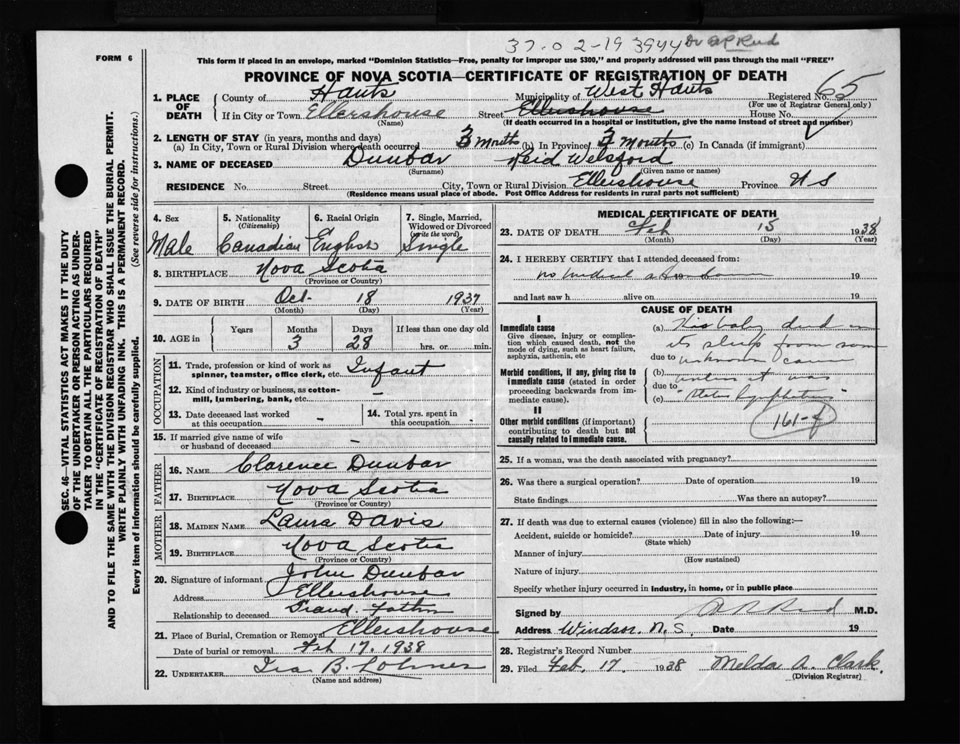 37-02-19 3944 Dr A R Reid
FORM 6
This form if placed in an envelope, marked "Dominion Statistics—Free, penalty for improper use $300," and properly addressed will pass through the mail "FREE"
PROVINCE OF NOVA SCOTIA—CERTIFICATE OF REGISTRATION OF DEATH
1. PLACE OF DEATH
County of Hants Municipality of West Hants Registered No. 65
(For use of Registrar General only)
If in City or Town Ellershouse Street Ellershouse House No.
(Name) (If death occurred in a hospital or institution, give the name instead of street and number)
2. LENGTH OF STAY (in years, months and days)
(a) In City, Town or Rural Division where death occurred 3 Months (b) In Province 3 Months (c) In Canada (if immigrant)
3. NAME OF DECEASED Dunbar Reid Welsford
(Surname) (Given name or names)
RESIDENCE No. Street City, Town or Rural Division Ellershouse Province N S
(Residence means usual place of abode. Post Office Address for residents in rural parts not sufficient)
SEC. 46—VITAL STATISTICS ACT MAKES IT THE DUTY
OF THE UNDERTAKER OR PERSON ACTING AS UNDER-
TAKER TO OBTAIN ALL THE PARTICULARS REQUIRED
IN THE "CERTIFICATE OF REGISTRATION OF DEATH"
AND TO FILE THE SAME WITH THE DIVISION REGISTRAR WHO SHALL ISSUE THE BURIAL PERMIT.
WRITE PLAINLY WITH UNFADING INK. THIS IS A PERMANENT RECORD.
Every item of information should be carefully supplied. (See reverse side for instructions.)
4. Sex 5. Nationality (Citizenship) 6. Racial Origin 7. Single, Married, Widowed or Divorced (write the word)
Male Canadian English Single
8. BIRTHPLACE Nova Scotia
(Province or Country)
9. DATE OF BIRTH Oct. 18 1937
(Month) (Day) (Year)
10. AGE in Years Months Days If less than one day old
3 28 hrs. or min.
OCCUPATION
11. Trade, profession or kind of work as
spinner, teamster, office clerk, etc. Infant
12. Kind of industry or business, as cotton-
mill, lumbering, bank, etc. -
13. Date deceased last worked
at this occupation - 14. Total yrs. spent in
this occupation -
15. If married give name of wife
or husband of deceased -
FATHER
16. NAME Clarence Dunbar
17. BIRTHPLACE Nova Scotia
(Province or Country)
MOTHER
18. MAIDEN NAME Laura Davis
19. BIRTHPLACE Nova Scotia
(Province or Country)
20. Signature of informant John Dunbar
Address Ellershouse
Relationship to deceased Grand-father
21. Place of Burial, Cremation or Removal Ellershouse
Date of burial or removal Feb 17. 1938
22. UNDERTAKER Ira B. Lohnes
(Name and address)
MEDICAL CERTIFICATE OF DEATH
23. DATE OF DEATH Feb 15 1938
(Month) (Day) (Year)
24. I HEREBY CERTIFY that I attended deceased from:
no medical 19
and last saw h alive on 19
CAUSE OF DEATH
I
Immediate cause
Give disease, injury or complication which caused death, not the mode of dying, such as heart failure, asphyxia, asthenia, etc
(a) This baby died in
its sleep from some
due to unknown cause
Morbid conditions, if any, giving rise to immediate cause (stated in order proceeding backwards from immediate cause).
(b) unless it was
due to
(c) "Status Lymphaticus"
II
Other morbid conditions (if important) contributing to death but not causally related to immediate cause.
161-f
25. If a woman, was the death associated with pregnancy?
26. Was there a surgical operation? Date of operation 19
State findings Was there an autopsy?
27. If death was due to external causes (violence) fill in also the following:—
Accident, suicide or homicide? Date of injury 19
(State which)
Manner of injury
(How sustained)
Nature of injury
Specify whether injury occurred in industry, in home, or in public place
Signed by A R Reid M.D.
Address Windsor. N.S. Date 19
28. Registrar's Record Number
29. Filed Feb. 17 1938 Melda A. Clark
(Division Registrar)